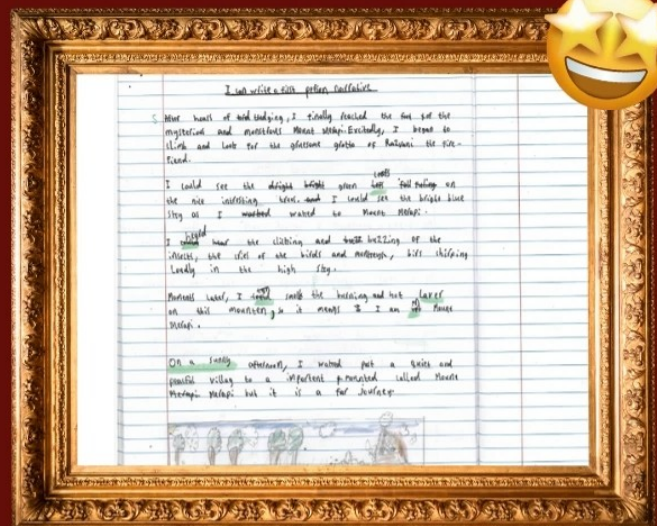 I can write a first person narrative
After hours of trudging, I finally reached the foot of the
mysterious and monstrous Mount Merapi. Excitedly, I began to
climb and look for the gruesome grotto of the fire-
fiend.
I could see the bright green on
the nice intresting trees. I could see the bright blue
sky as I walked to Mount Merapi.
I heyed the clicking and buzzing of the
insects, the cries of the birds and
Loudly in the high sky.
Moments Later, I smelt the burning and hot Laver
on this mounten, so it means I am Mount
Merapi.
On a sunny afternoon, I walked past a quiet and
peacful villag to a called Mount
Merapi but it is a far Journey